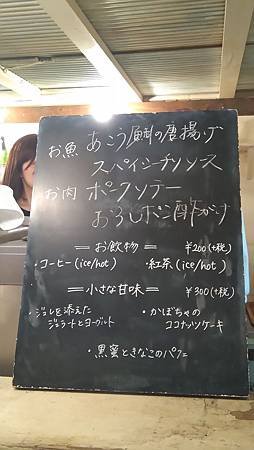 お魚 あこう鯛の唐揚げ
スパイシーチリソース
お肉 ポークソテー
おろしポン酢がけ
＝お飲物＝ ¥200(+税)
・コーヒー(ice/hot) ・紅茶(ice/hot)
＝小さな甘味＝ ¥300(+税)
・ジュレを添えた
ジェラートとヨーグルト
・かぼちゃの
ココナッツケーキ
・黒蜜ときなこのパフェ